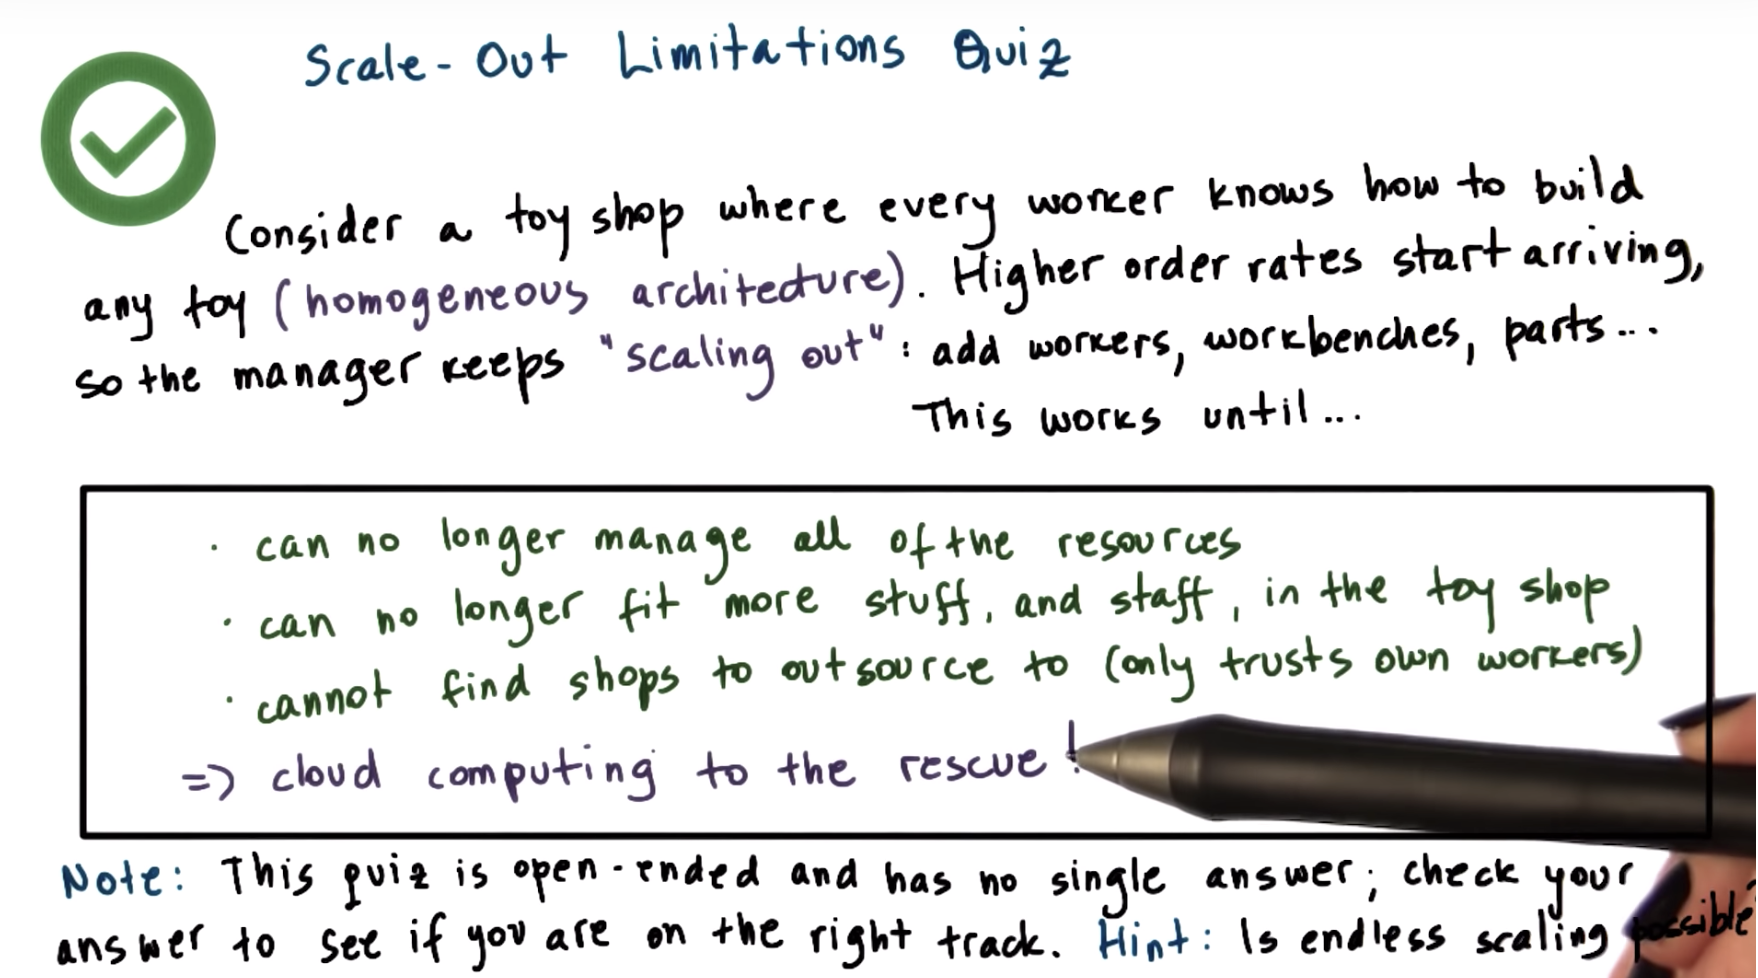 Scale-Out Limitations Quiz
Consider a toy shop where every worker knows how to build
any toy (homogeneous architecture). Higher order rates start arriving,
so the manager keeps "scaling out": add workers, workbenches, parts...
This works until...
· can no longer manage all of the resources
· can no longer fit more stuff, and staff, in the toy shop
· cannot find shops to outsource to (only trusts own workers)
=> cloud computing to the rescue!
Note: This quiz is open-ended and has no single answer; check your
answer to see if you are on the right track. Hint: Is endless scaling possible?